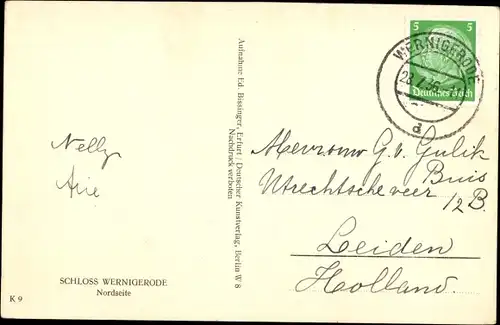 5 5
WERNIGERODE
Deutsches Reich
d
Nelly
Arie
Aufnahme Ed. Bissinger, Erfurt / Deutscher Kunstverlag, Berlin W 8
Nachdruck verboten
Mevrouw G. v. Gulik
Buis
Utrechtscheveer
12B.
Leiden
Holland.
SCHLOSS WERNIGERODE
Nordseite
K 9